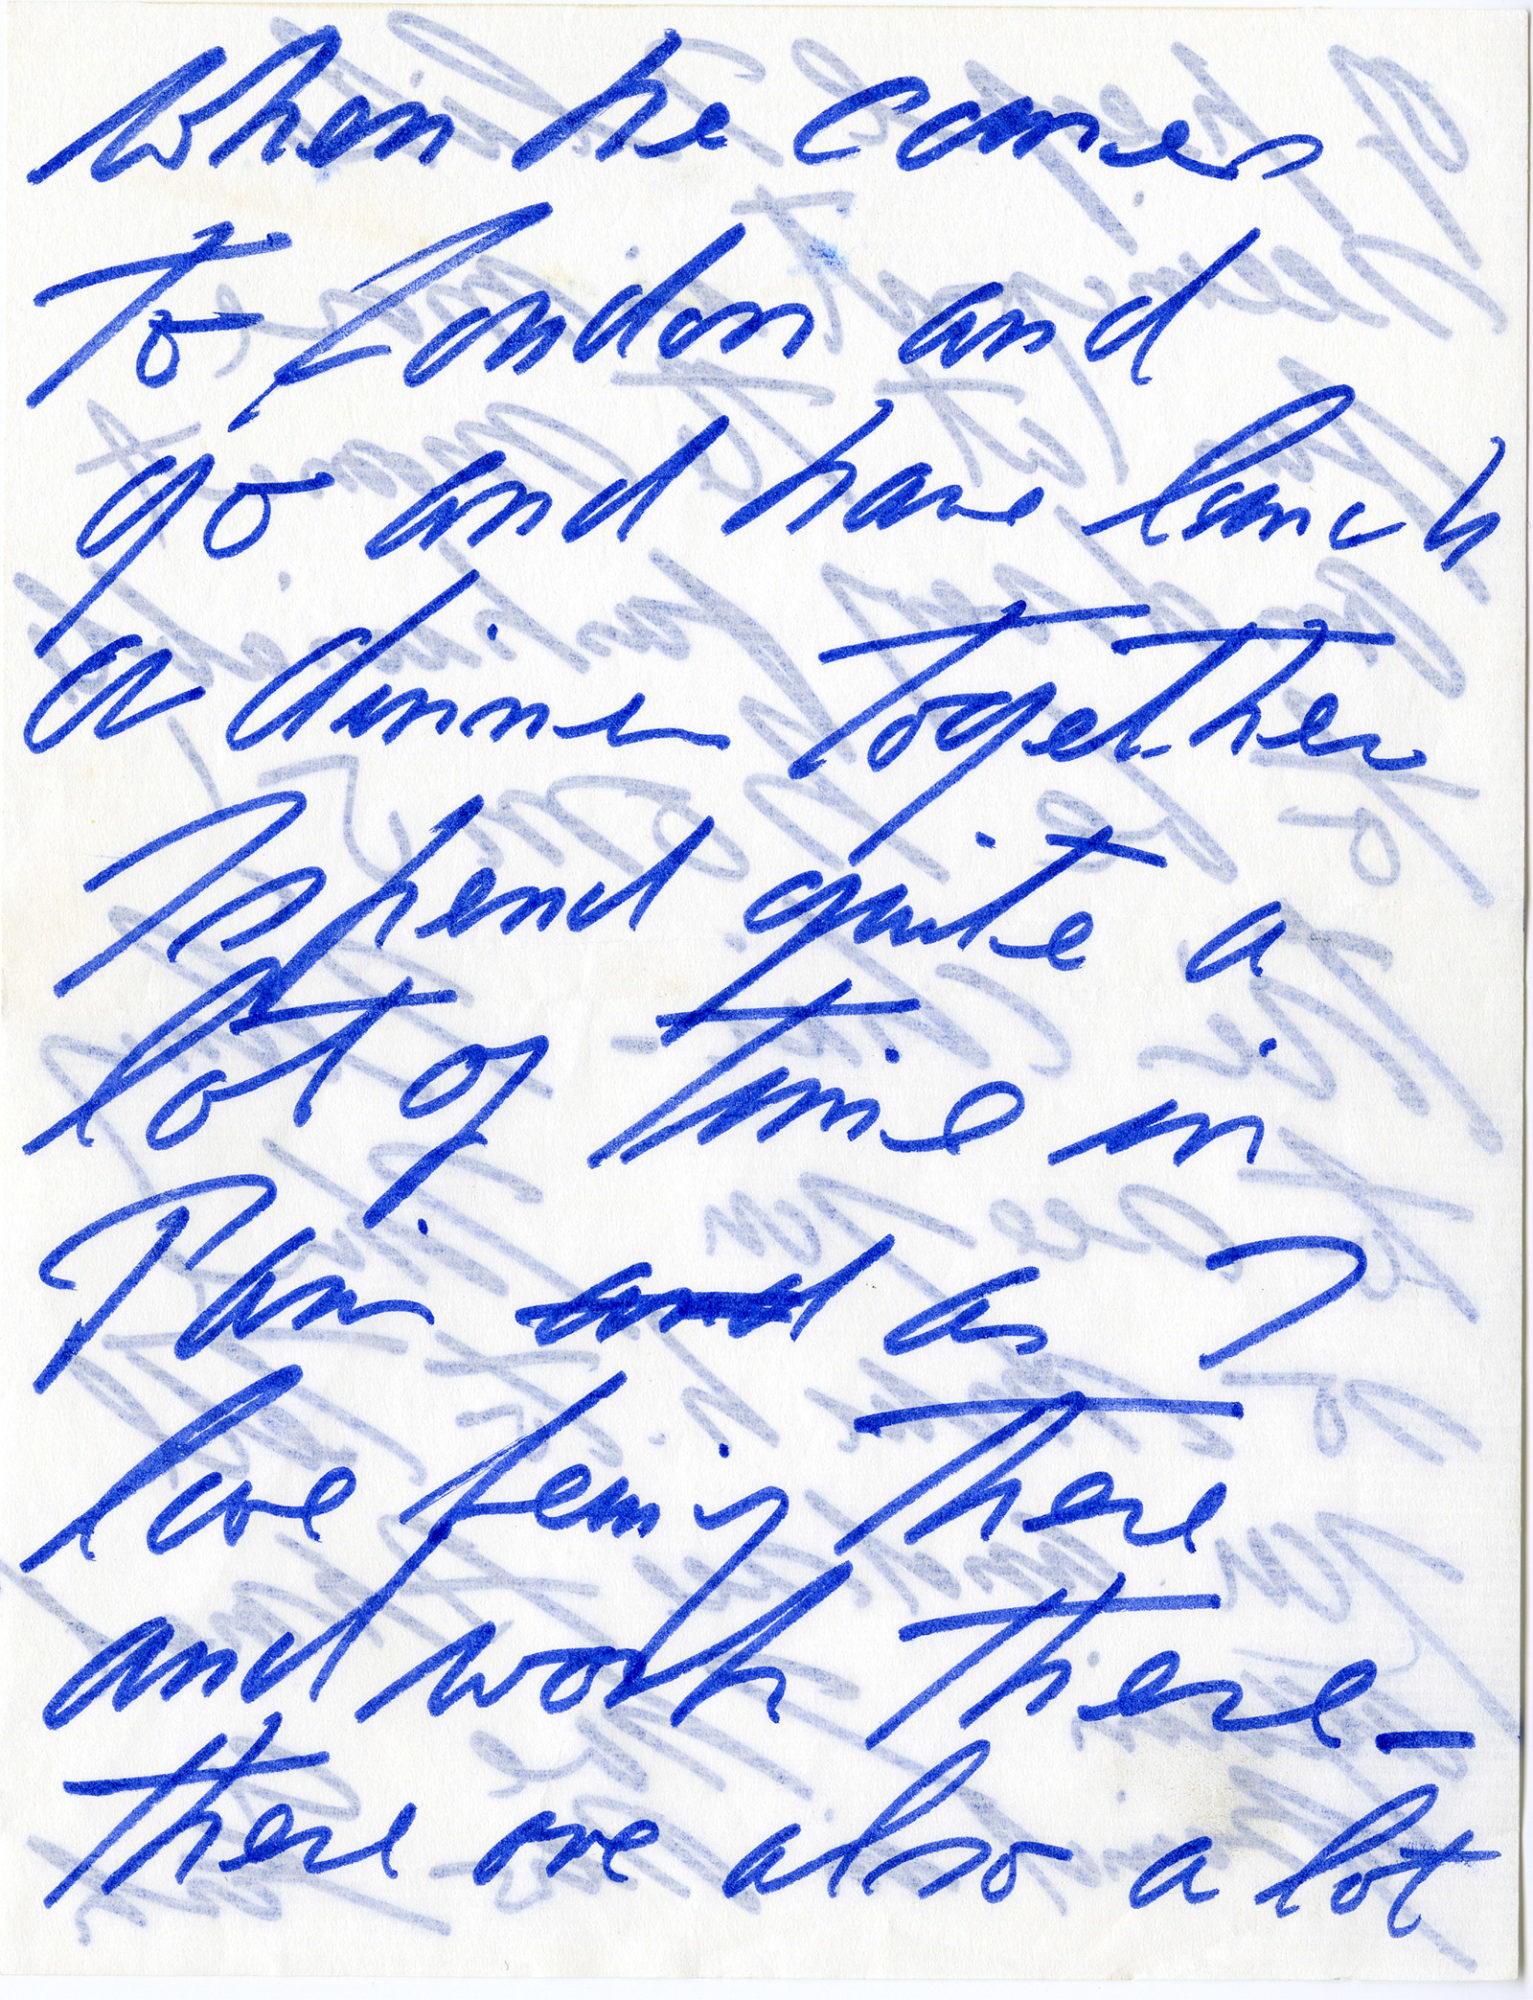 when he comes
to London and
go and have lunch
or dinner together
I spend quite a
lot of time in
Paris and as I
love being there
and work there –
there are also a lot